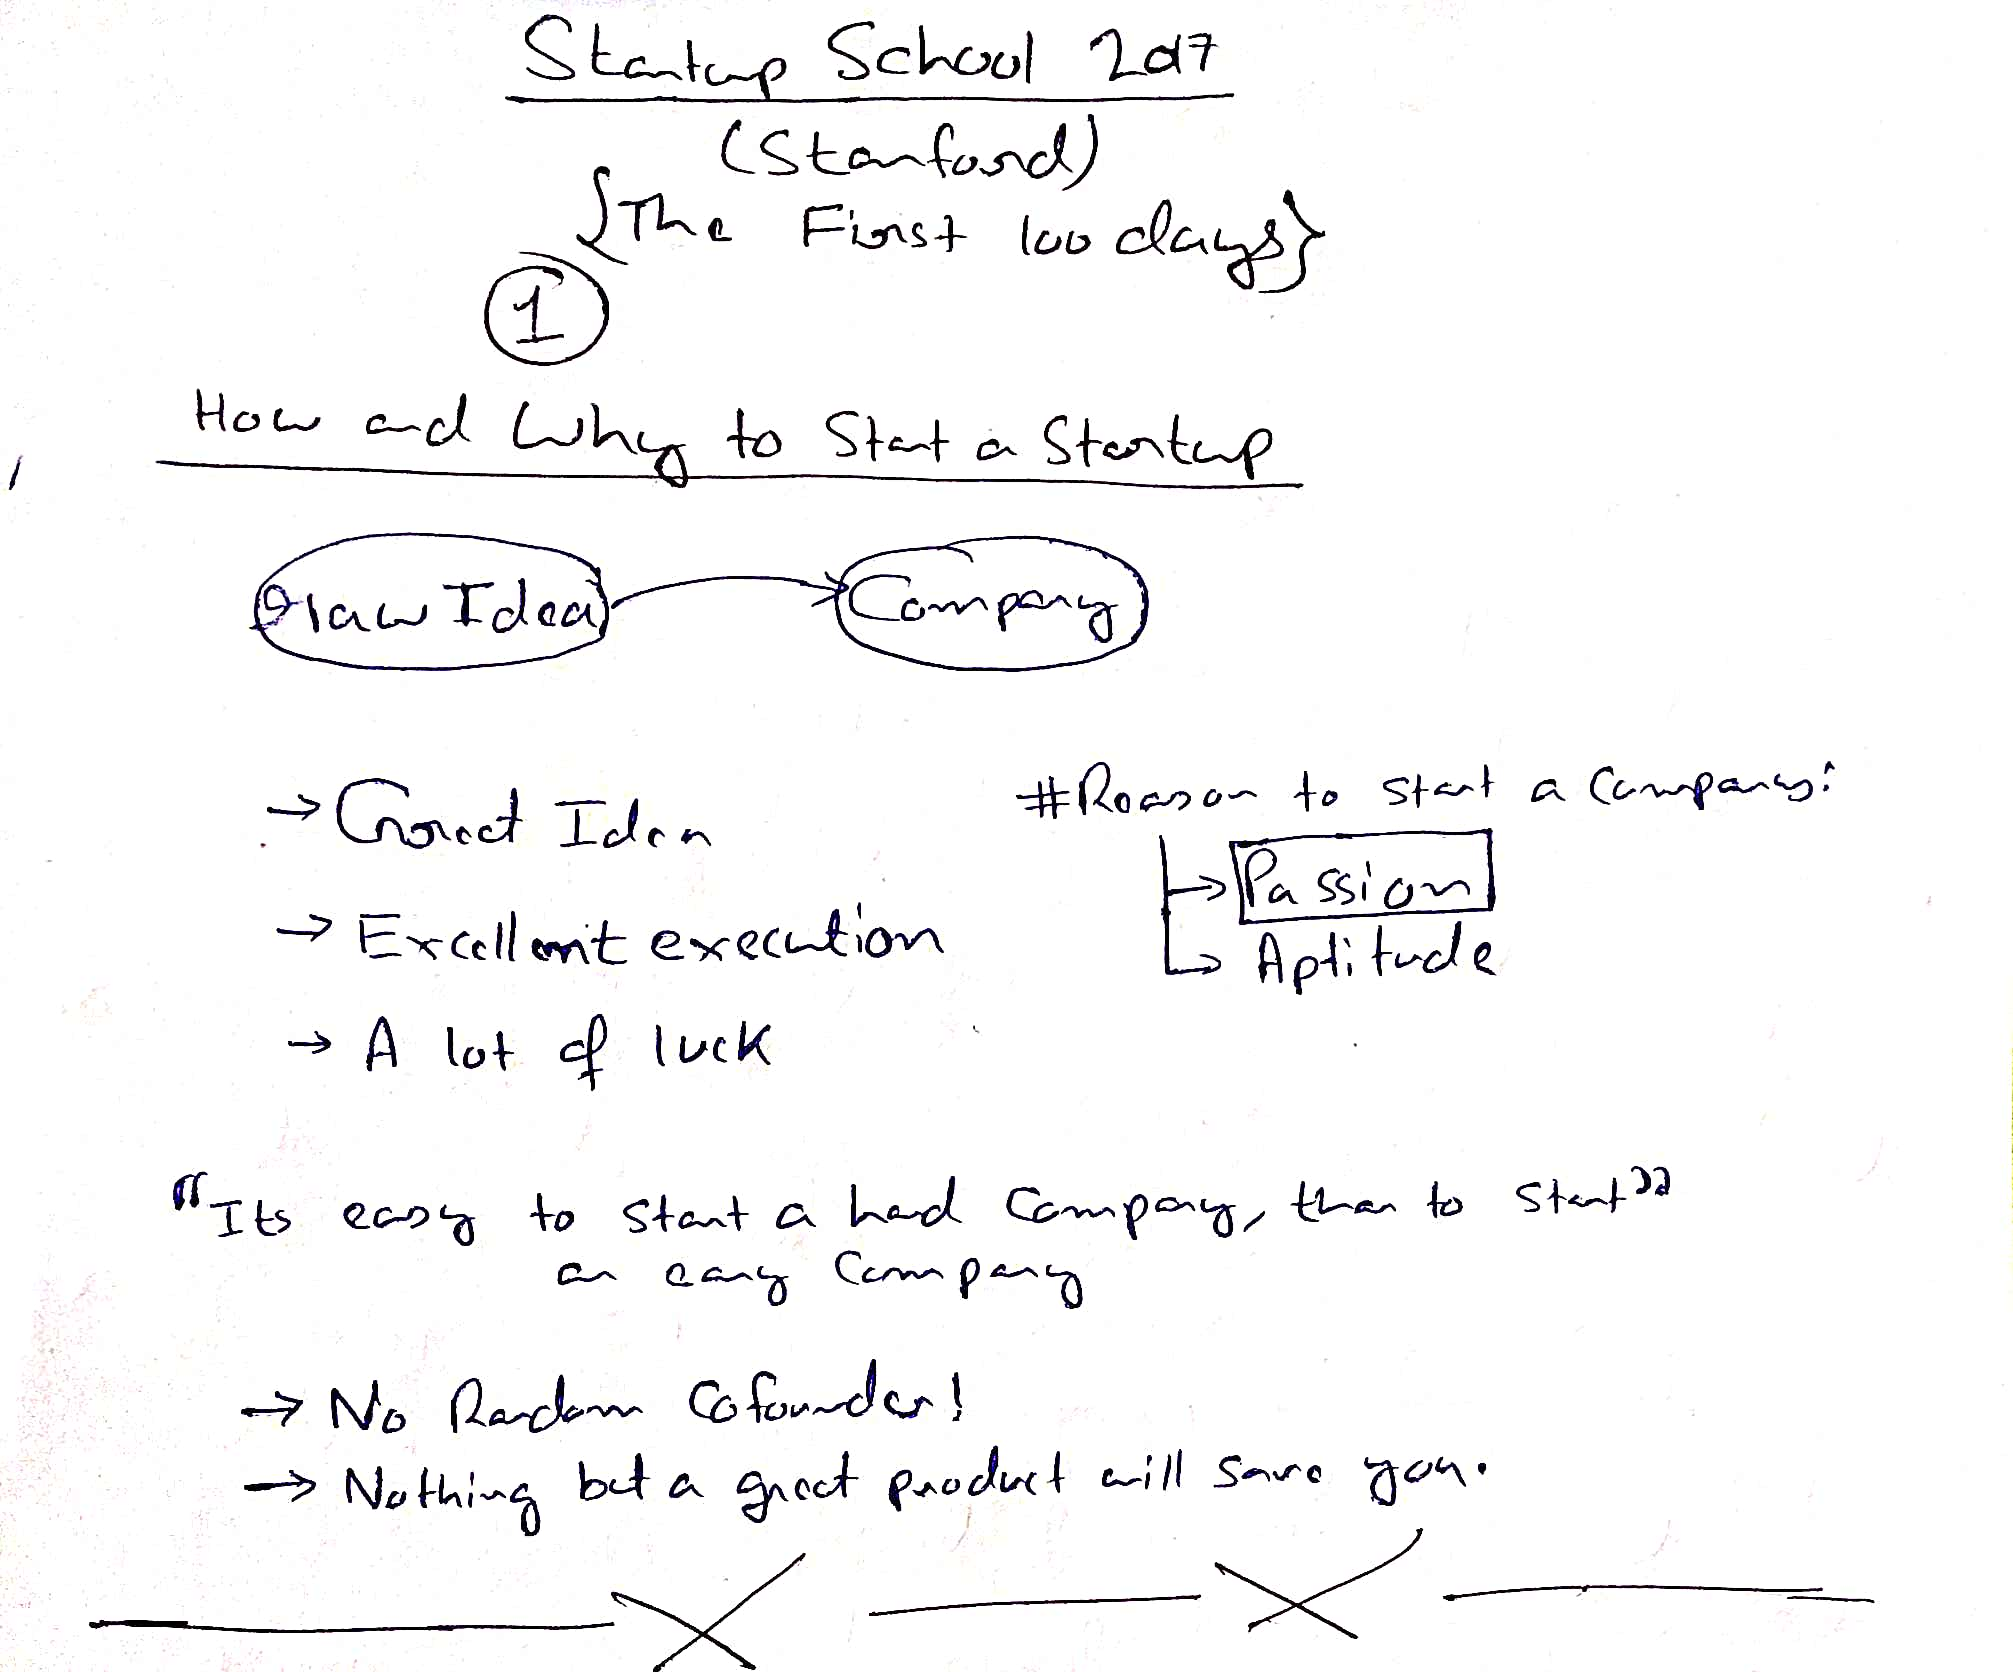 Startup School 2017
(Stanford)
{The First 100 days}
1
How and Why to Start a Startup
raw Idea
Company
→ Great Idea
→ Excellent execution
→ A lot of luck
#Reason to start a Company:
→ Passion
→ Aptitude
"Its easy to start a hard Company, than to start"
an easy Company
→ No Random Cofounder!
→ Nothing but a great product will save you.